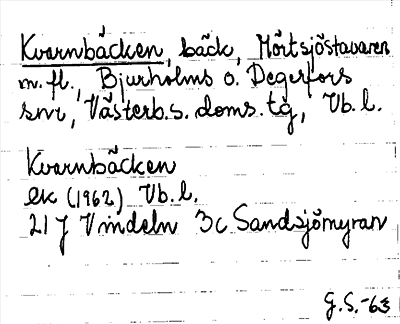 Kvarnbäcken, bäck, Mörtsjöstavaren
m.fl., Bjurholms o. Degerfors
snr, Västerb.s. doms. tg, Vb. l.
Kvarnbäcken
ek (1962) Vb. l.
21 J Vindeln 3c Sandsjömyran
G.S.-63